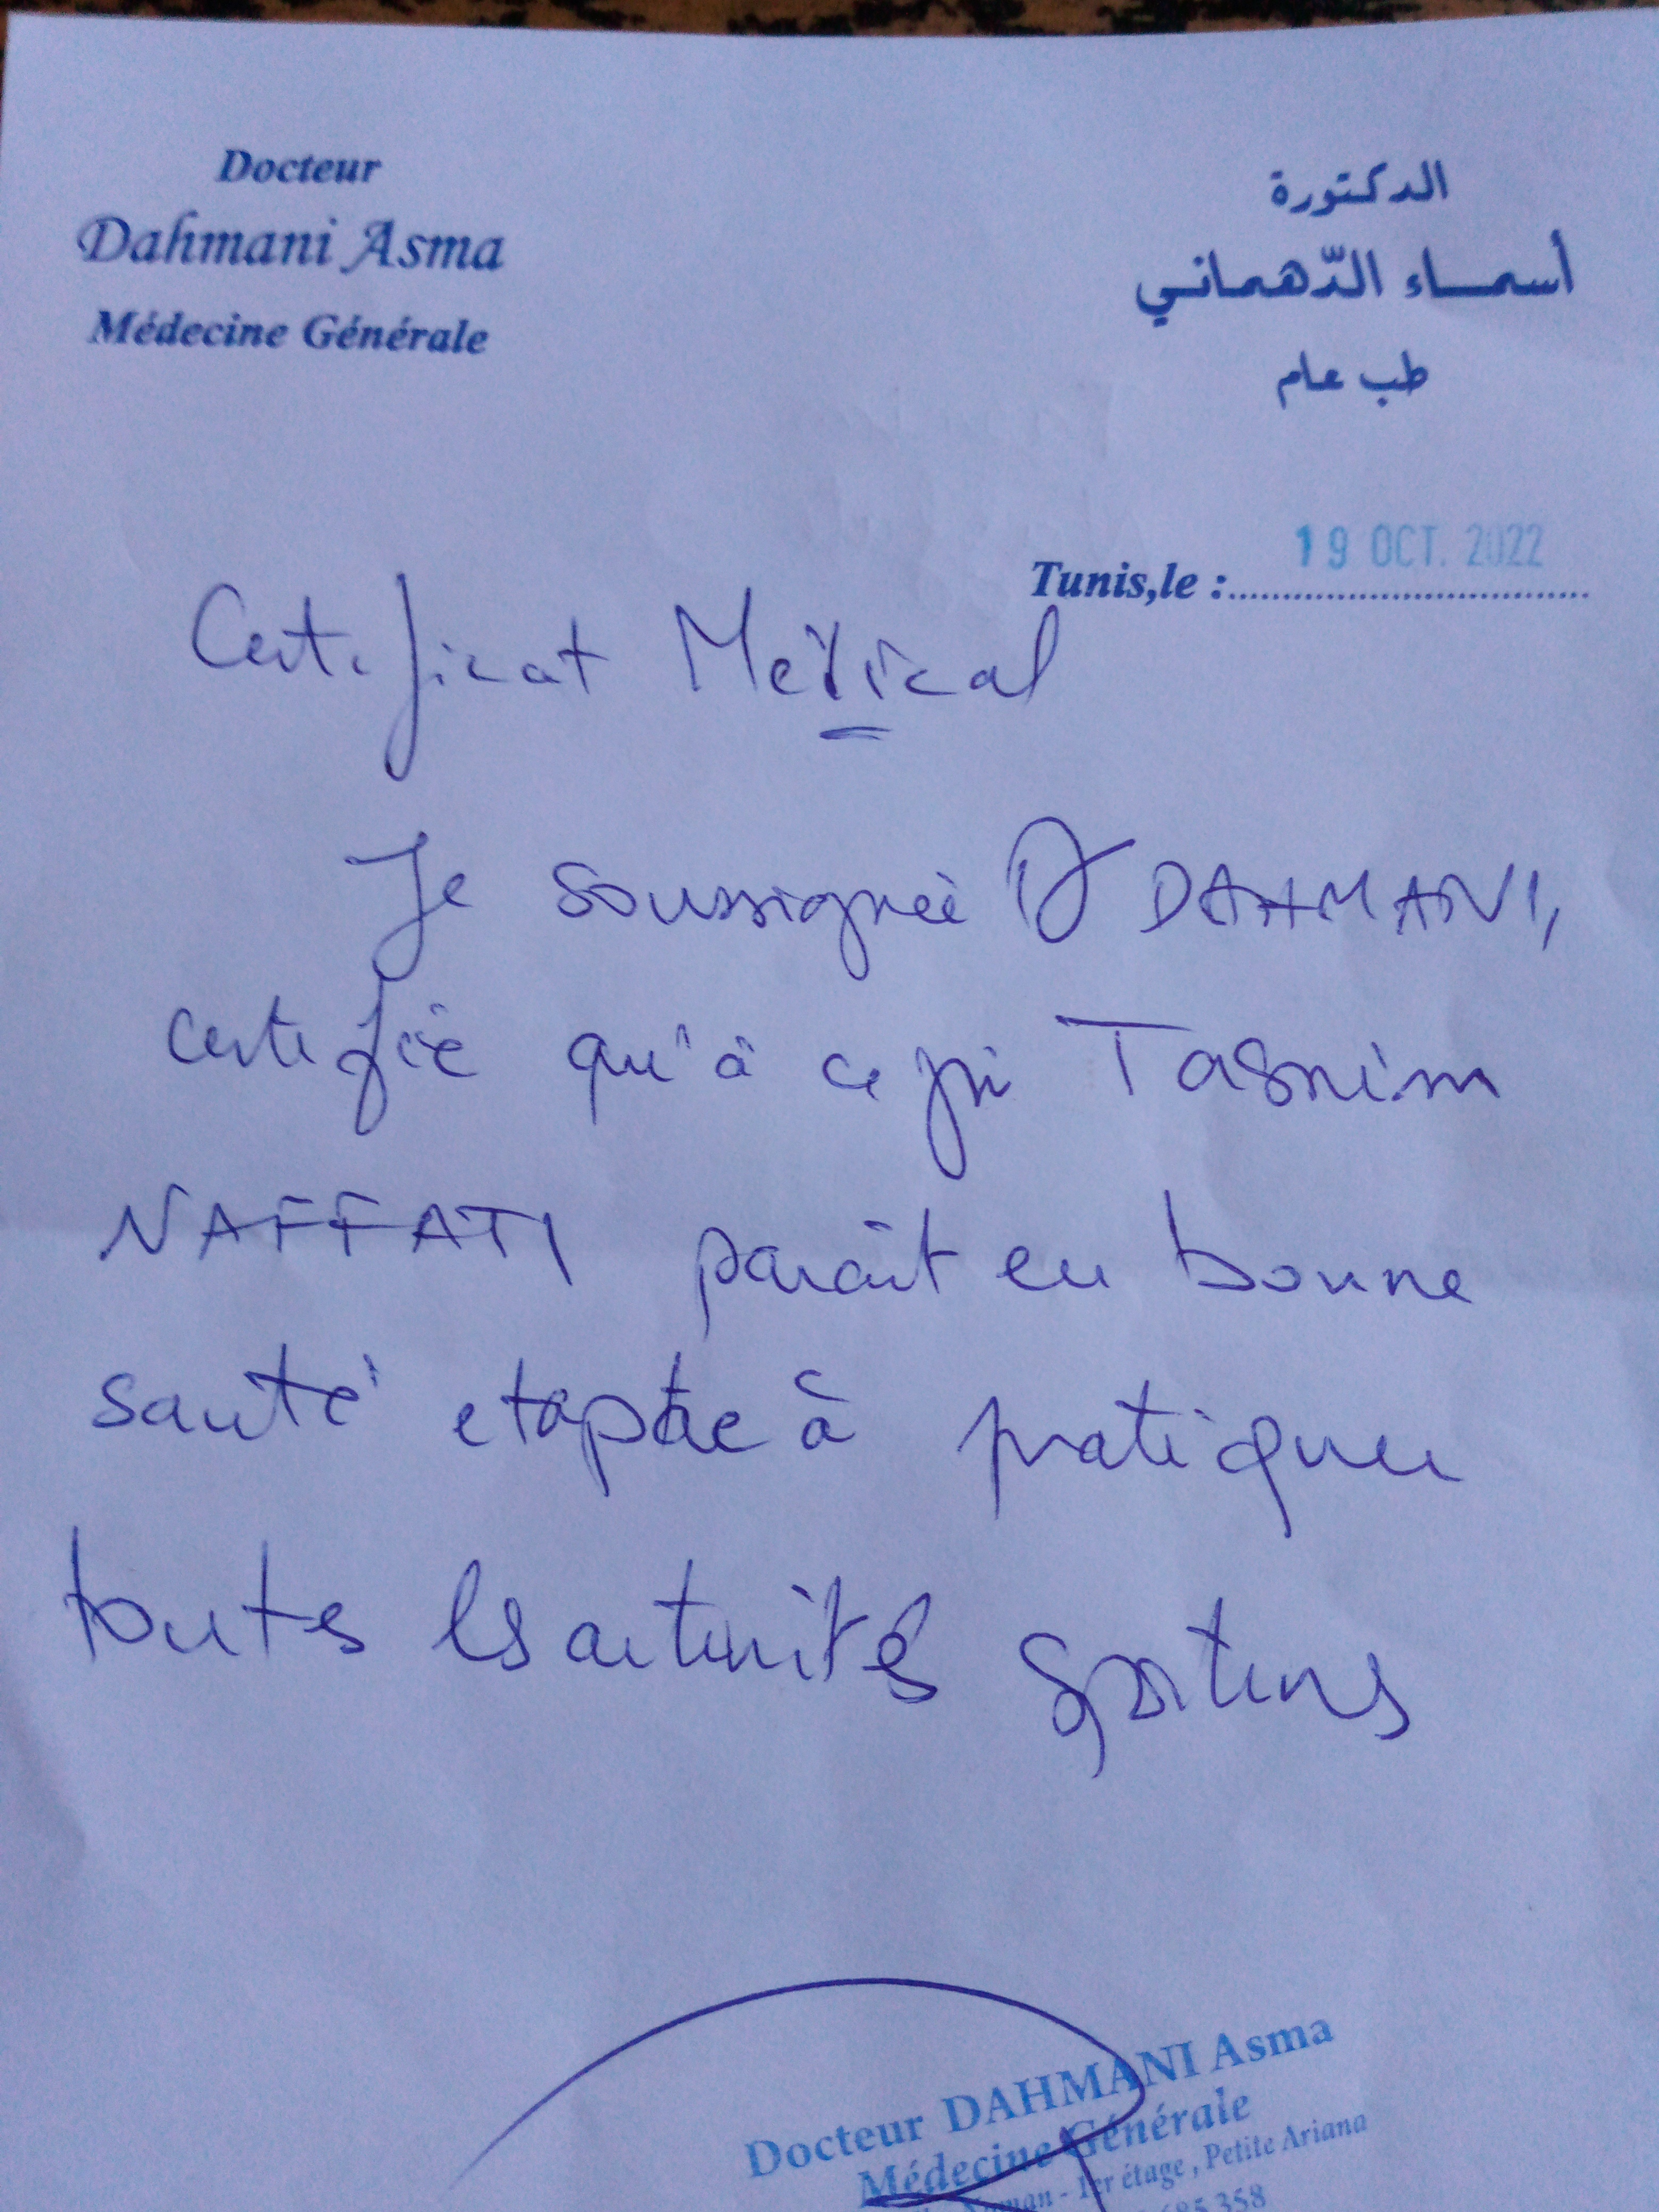 Docteur
Dahmani Asma
Médecine Générale
الدكتورة
أسماء الدّهماني
طب عام
Tunis,le : 19 OCT. 2022
Certificat Médical
Je soussignée Dr DAHMANI,
certifie qu'à ce jr Tasnim
NAFFATI parait en bonne
santé et apte à pratiquer
toutes les activités sportives
Docteur DAHMANI Asma
Médecine Générale
- 1er étage , Petite Ariana
685 358